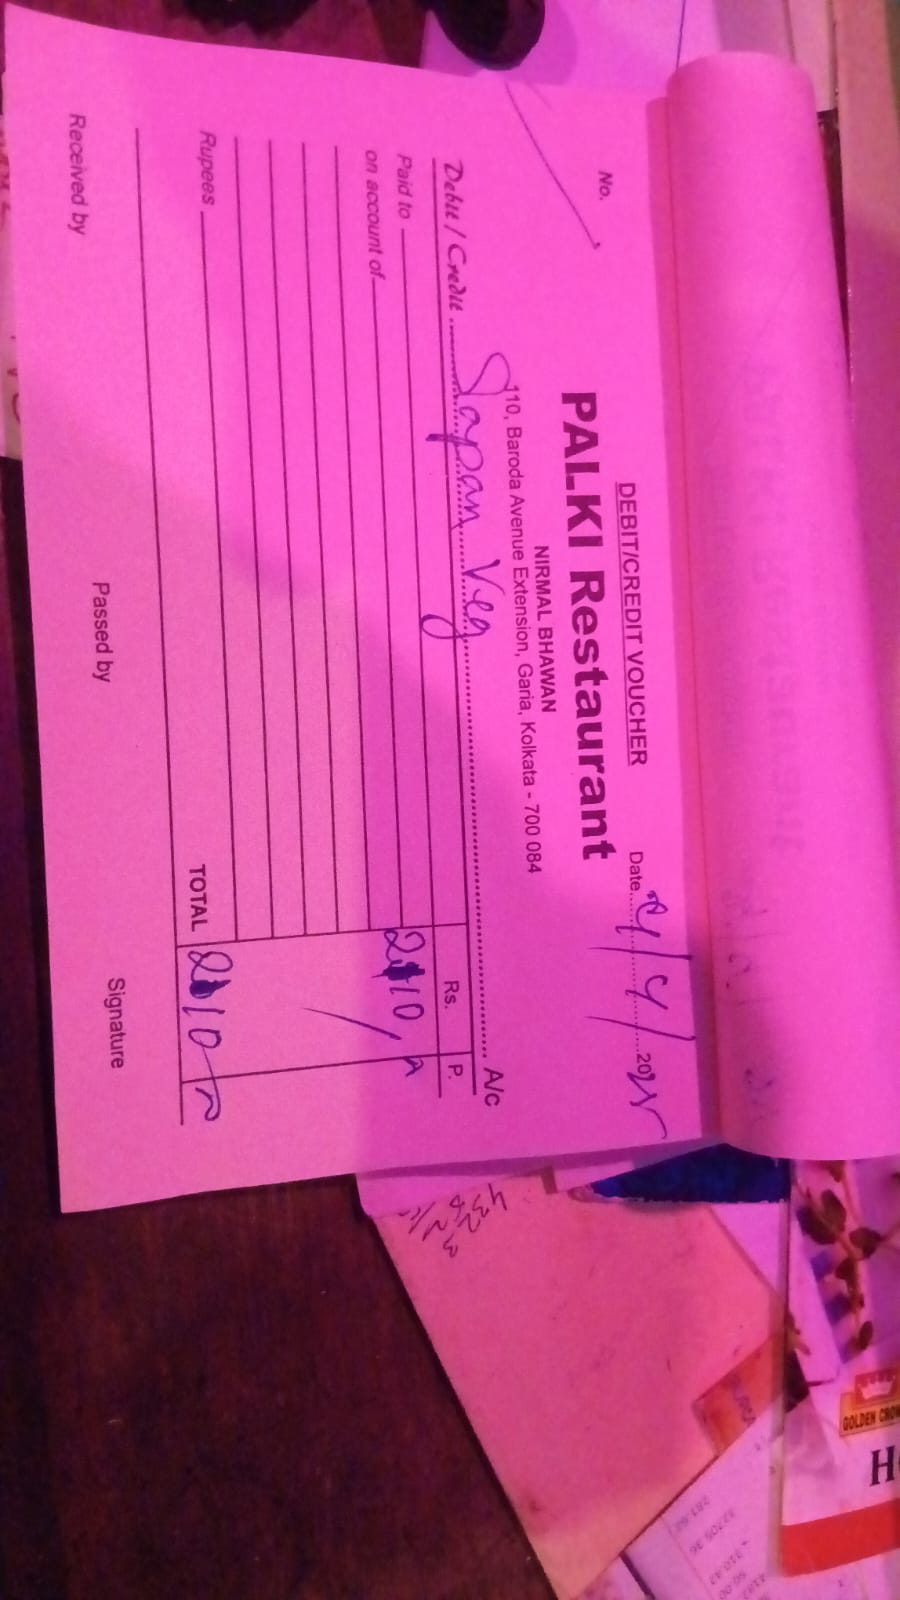 DEBIT/CREDIT VOUCHER
No.
Date 4/4/2025
PALKI Restaurant
NIRMAL BHAWAN
110, Baroda Avenue Extension, Garia, Kolkata - 700 084
Debit / Credit Tapan Veg A/c
Rs. P.
Paid to
on account of
Rupees
TOTAL
Received by Passed by Signature
GOLDEN CROW